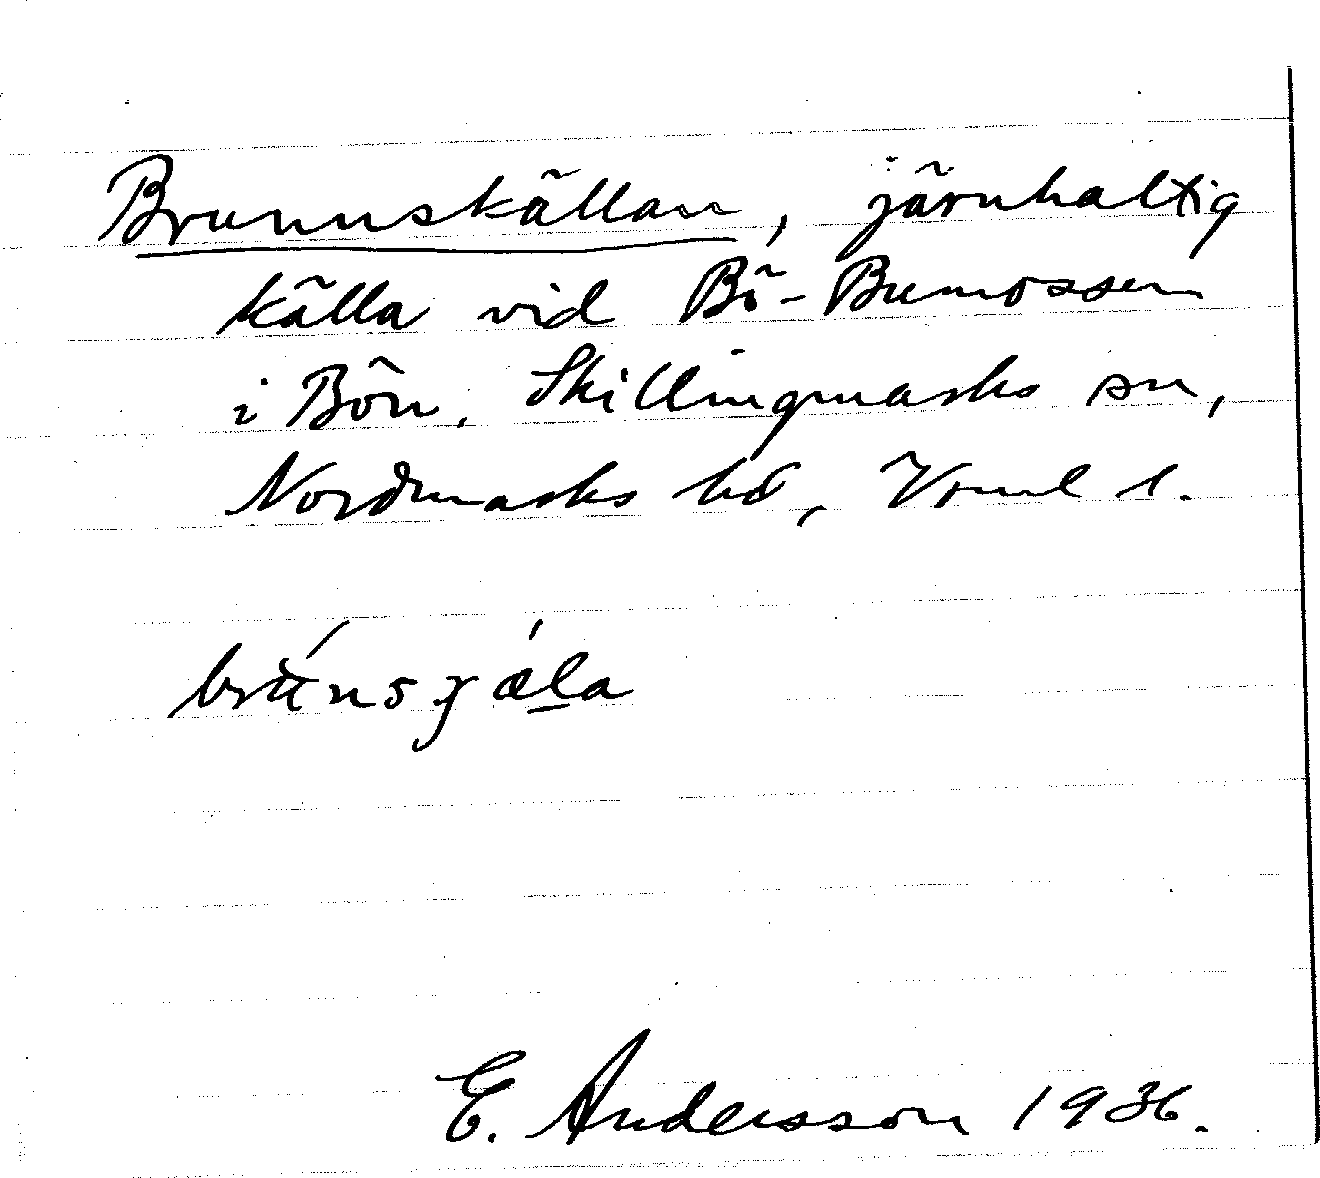 Brunnskällan, järnhaltig
källa vid Bö-Bumossen
i Bön, Skillingmarks sn,
Nordmarks hd, Vrml l.
E. Andersson 1936.